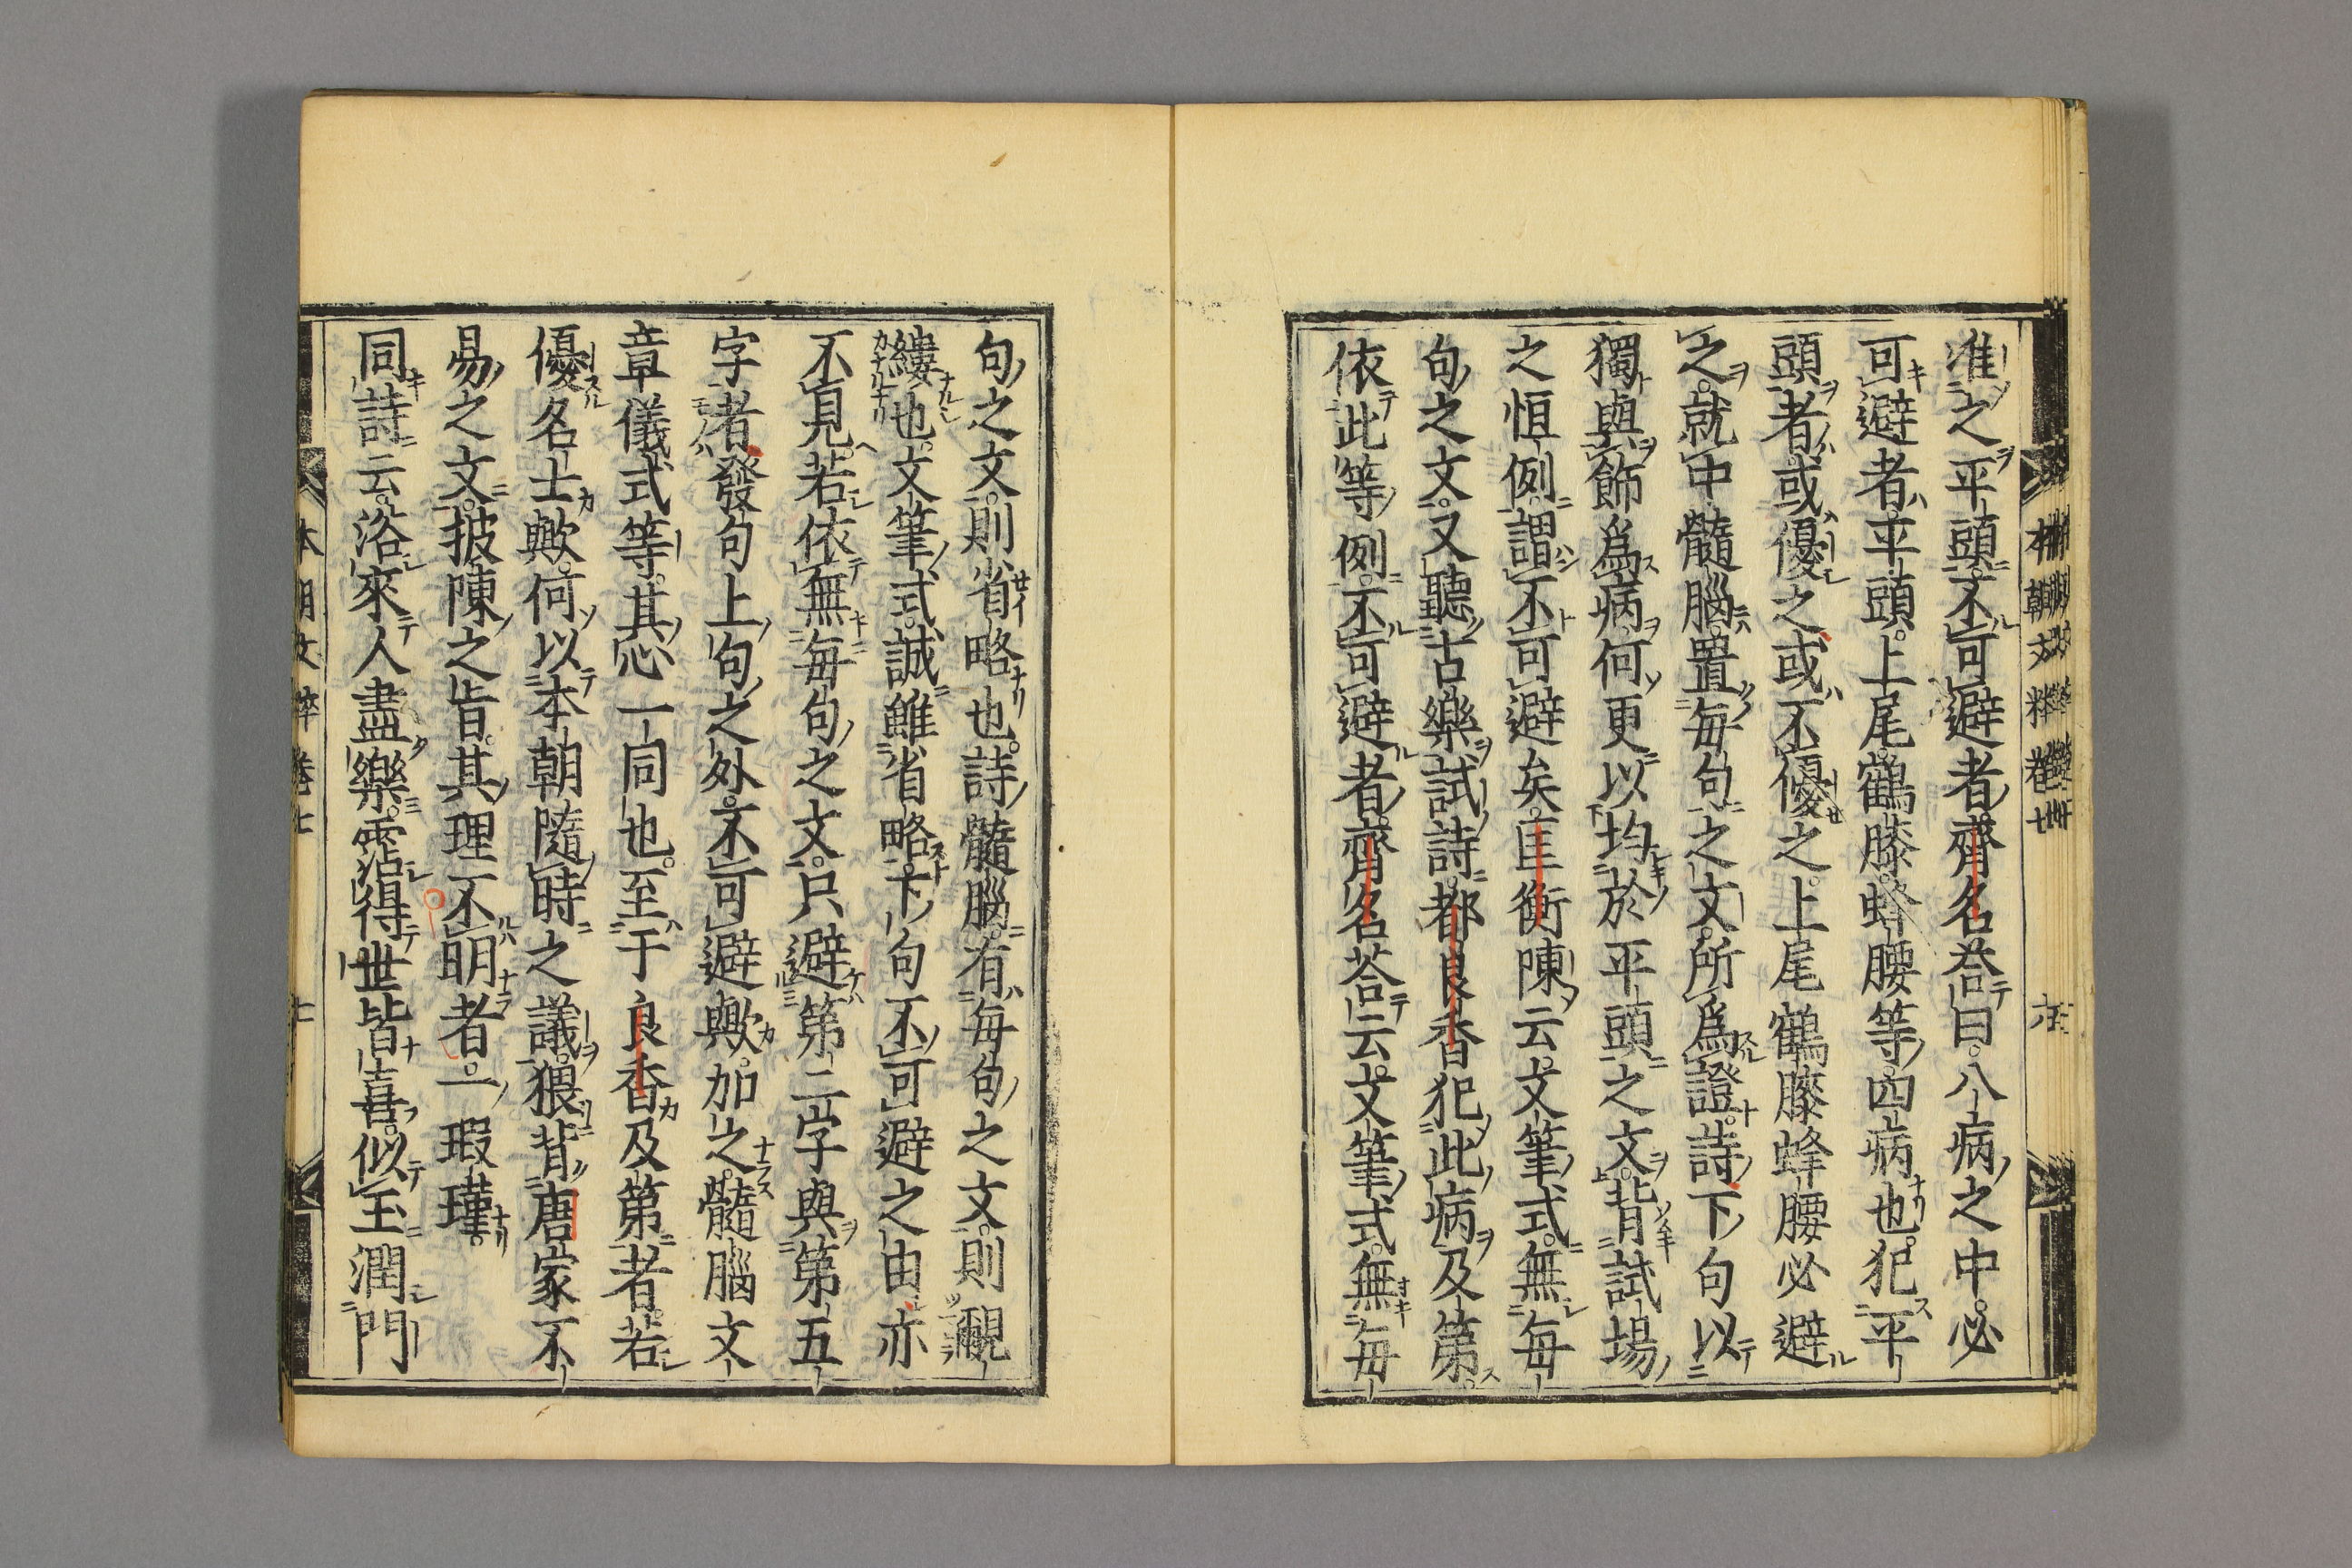 准之平頭不可避者齊名答曰八病之中必
可避者平頭上尾鶴膝蜂腰等四病也犯平
頭者或優之或不優之上尾鶴膝蜂腰必避
之就中髓腦置每句之文所爲證詩下句以
獨與飾爲病何更以均於平頭之文背試場
之恒例謂不可避矣匡衡陳云文筆式無每
句之文又聽古樂試詩都良香犯此病及第
依此等例不可避者齊名荅云文筆式無每
句之文則省略也詩髓腦有每句之文則覼
縷也文筆式誠雖省略下句不可避之由亦
不見若依無每句之文只避第二字與第五
字者發句上句之外不可避歟加之髓腦文
章儀式等其心一同也至于良香及第者若
優名士歟何以本朝隨時之議猥背唐家不
易之文披陳之旨其理不明者一瑕瑾
同詩云洛來人盡樂霑得世皆喜似玉潤門
本朝文粹卷七